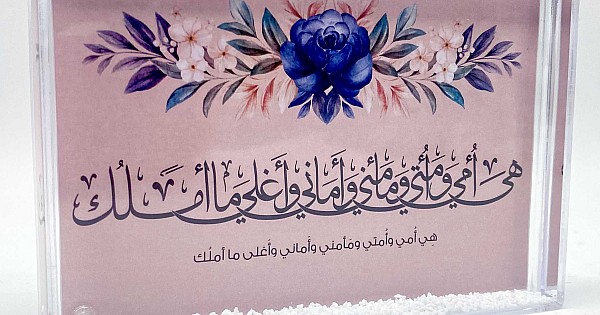 هِيَ أُمّي وأُمَّتي ومَأمَني وأَماني وأَغلى ما أملُك
هِي أُمي وأُمتي ومَأمني وأَماني وأَغلى ما أملُك